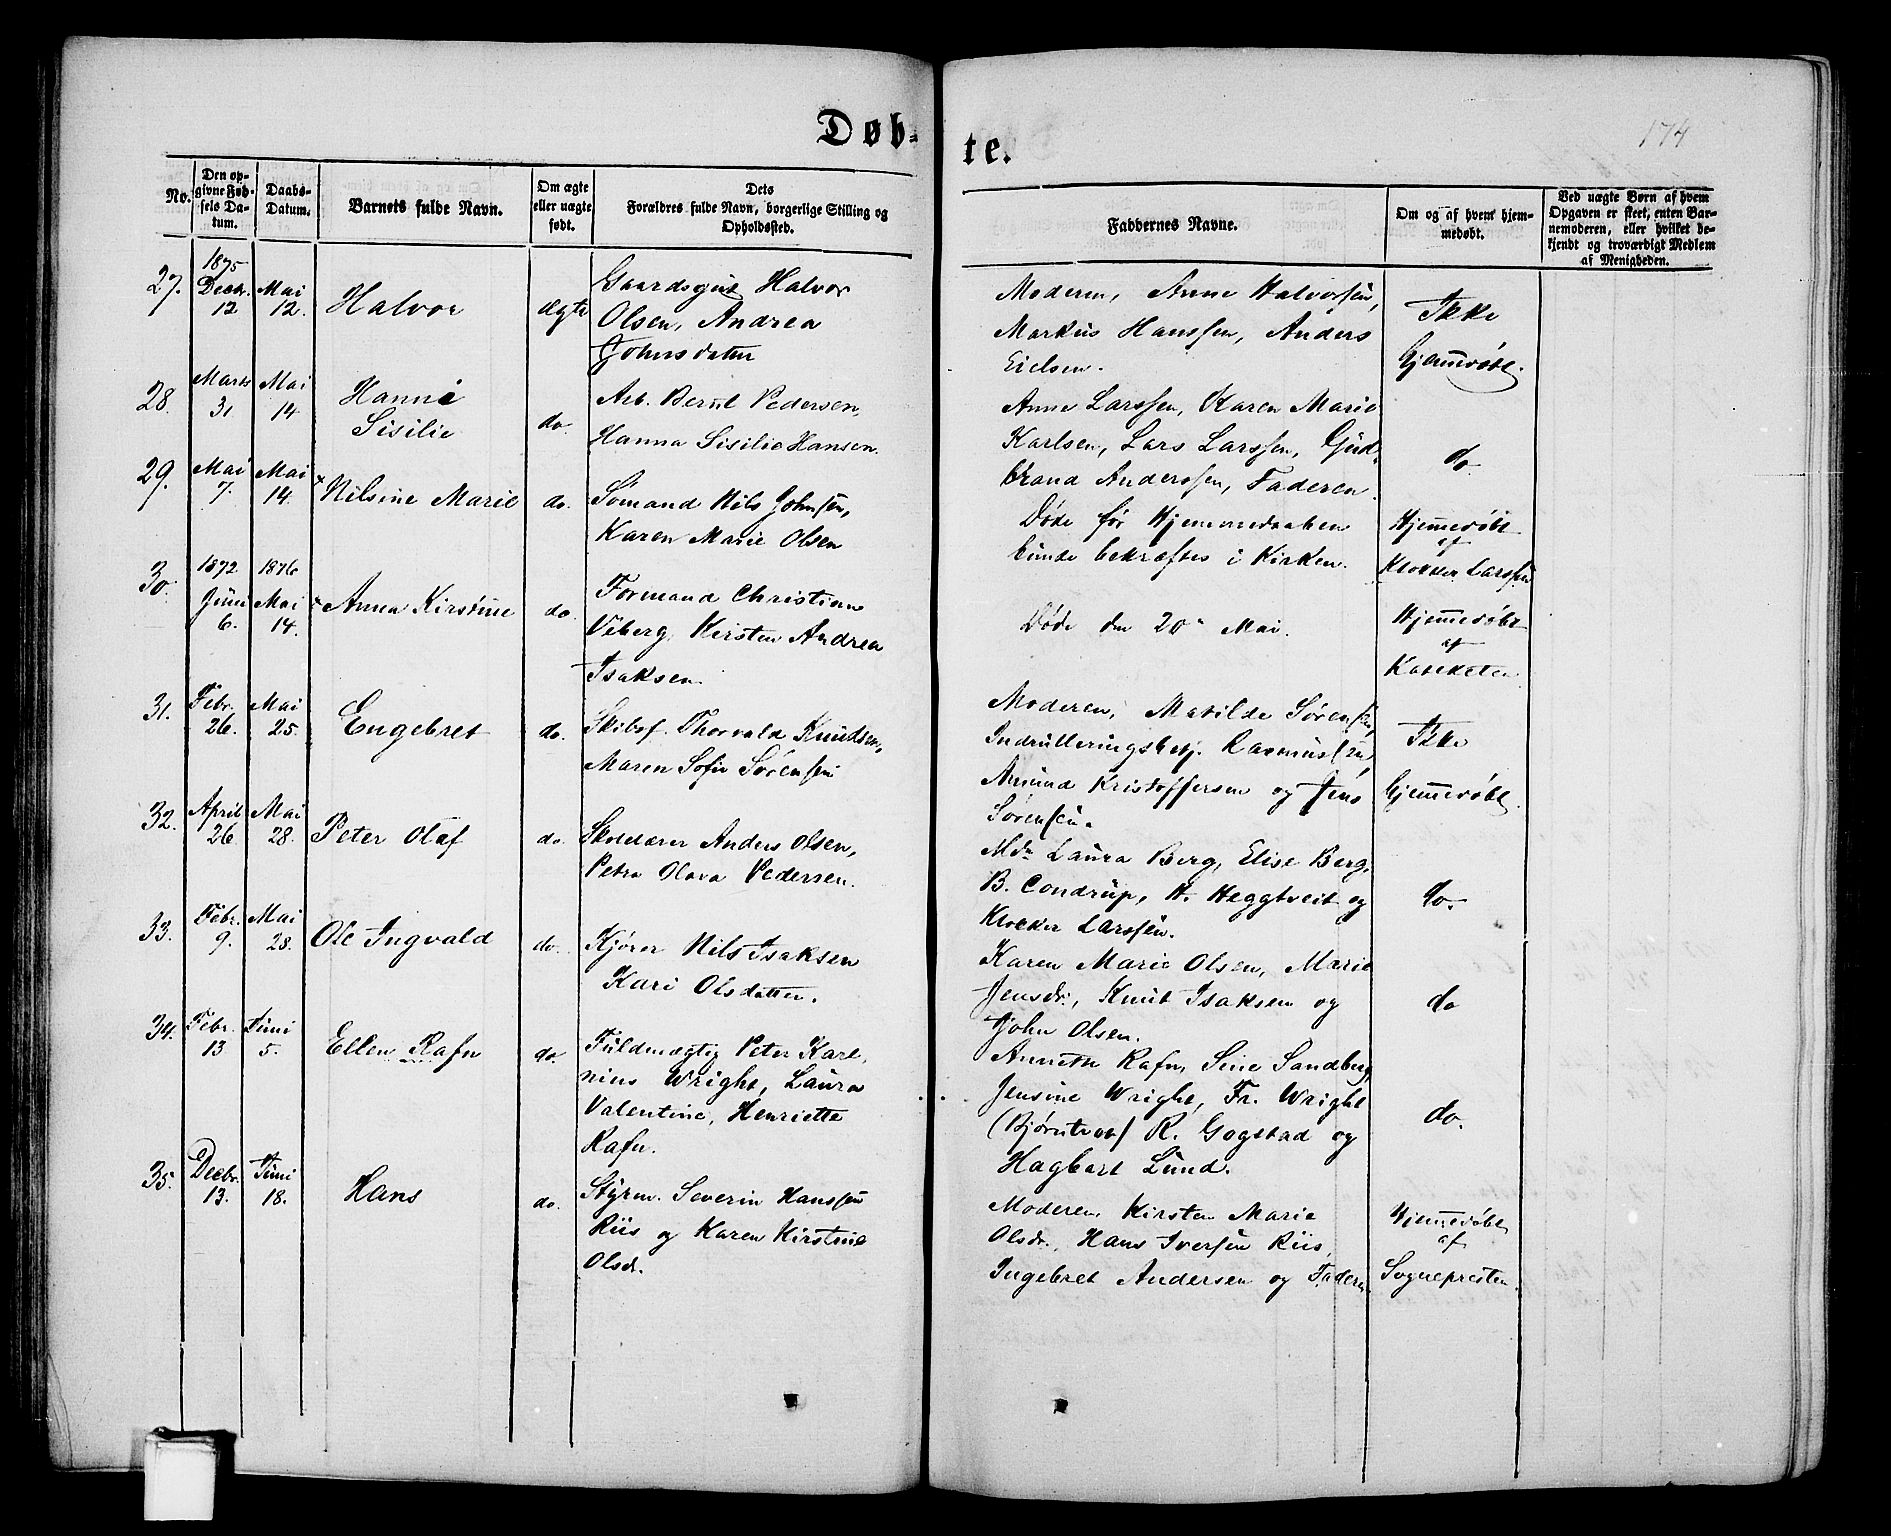 Døb-
te.
174
No.
Den op-
givne Fød-
sels Da-
tum.
Daabs-
Datum.
Barnets fulde Navn.
Om ægte
eller uægte
født.
Dets
Forældres fulde Navn, borgerlige Stilling og
Opholdssted.
Faddernes Navne.
Om og af hvem hjem-
medøbt.
Ved uægte Børn af hvem
Opgaven er skeet, enten Bar-
nemoderen, eller hvilket be-
kjendt og troværdigt Medlem
af Menigheden.
27.
1875
Decbr.
12
Mai
12.
Halvor
ægte
Gaardsgut Halvor
Olsen, Andrea
Johnsdatter
Moderen, Anne Halvorsen,
Markus Hanssen, Anders
Eielsen.
Ikke
hjemmedøbt.
28.
Marts
31
Mai
14
Hanne
Sisilie
do.
Arb. Bernt Pedersen,
Hanna Sisilie Hansen.
Anne Larssen, Karen Marie
Karlsen, Lars Larssen, Gud-
brand Anderssen, Faderen.
do
29.
Mai
7.
Mai
14.
Nilsine Marie
do.
Sømand Nils Johnsen,
Karen Marie Olsen
Døde før Hjemmedaaben
kunde bekræftes i Kirken.
Hjemmedøbt
af
Klokker Larssen
30.
1872
Juni
6.
1876
Mai
14.
Anna Kirstine
do.
Formand Christian
Viberg, Kirsten Andrea
Isaksen.
Døde den 20 Mai.
Hjemmedøbt
af
Kateketen
31.
Febr.
26.
Mai
25.
Engebret
do.
Skibsf. Thorvald Knudsen,
Maren Sofie Sørensen
Moderen, Matilde Sørensen,
Indrulleringsbetj. Rasmussen,
Amund Kristoffersen og Jens
Sørensen.
Ikke
hjemmedøbt.
32.
April
26
Mai
28.
Peter Olaf
do.
Skolelærer Anders Olsen,
Petra Olava Pedersen.
Mdm Laura Berg, Elise Berg,
B. Condrup, H. Heggtveit og
Klokker Larssen.
do.
33.
Febr.
9.
Mai
28.
Ole Ingvald
do.
Kjører Nils Isaksen
Kari Olsdatter.
Karen Marie Olsen, Marie
Jensdr., Knut Isaksen og
John Olsen.
do
34.
Febr.
13
Juni
5.
Ellen Rafn
do.
Fuldmægtig Peter Karl
nius Wright, Laura
Valentine, Henriette
Rafn.
Annette Rafn, Sine Sandberg,
Jensine Wright, Fr. Wright
(Bjørntvet) R. Gogstad og
Hagbart Lund.
do.
35.
Decbr.
13.
Juni
18.
Hans
do.
Styrm. Severin Hanssen
Riis og Karen Kirstine
Olsdr.
Moderen, Kirsten Marie
Olsdr., Hans Iversen Riis,
Ingebret Andersen og Faderen
Hjemmedøbt
af
Sognepresten.